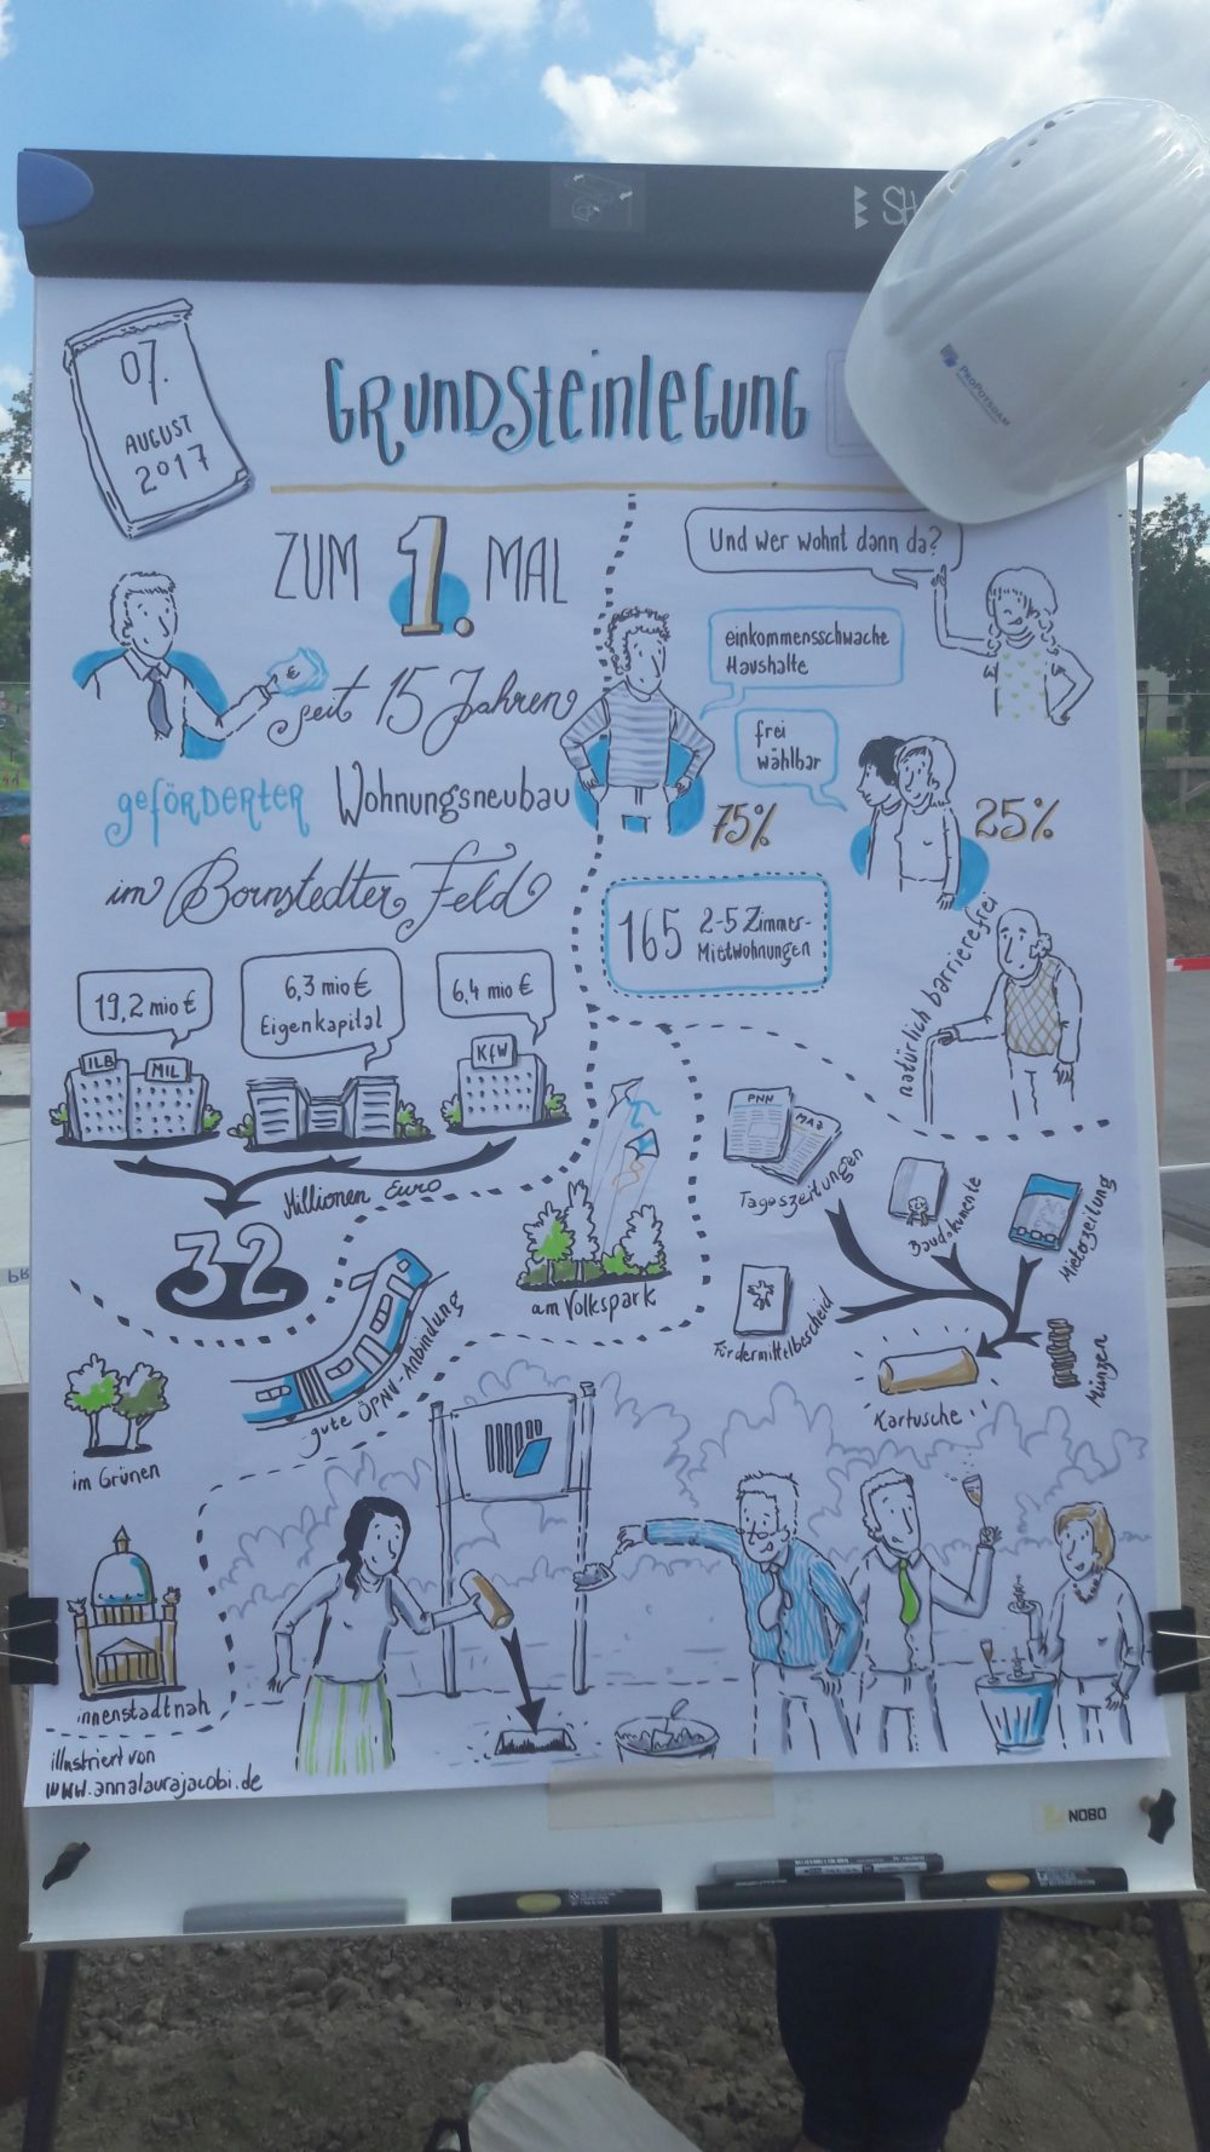 SH
07.
AUGUST
2017
GRUNDSteinleGunG
PROPOTSDAM
ZUM 1. MAL
seit 15 Jahren
geförDerter Wohnungsneubau
im Bornstedter Feld
Und wer wohnt dann da?
einkommensschwache
Haushalte
75%
frei
wählbar
25%
165 2-5 Zimmer-
Mietwohnungen
natürlich barrierefrei
19,2 mio €
ILB
MIL
6,3 mio €
Eigenkapital
6,4 mio €
KfW
Millionen Euro
32
am Volkspark
gute ÖPNV-Anbindung
im Grünen
innenstadtnah
PNN
MAZ
Tageszeitungen
Baudokumente
Mieterzeitung
Fördermittelbescheid
Münzen
Kartusche
illustriert von
www.annalaurajacobi.de
NOBO